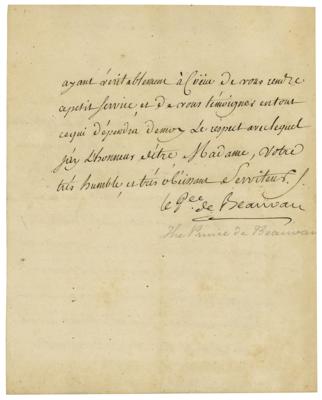 ayant véritablement à Cœur de vous rendre
ce petit Service et de vous témoigner en tout
ce qui dépendra de moy Le respect avec lequel
j'ay L'honneur d'être Madame, Votre
très humble et très obéissant Serviteur.
le Pce de Beauvau
The Prince de Beauvau